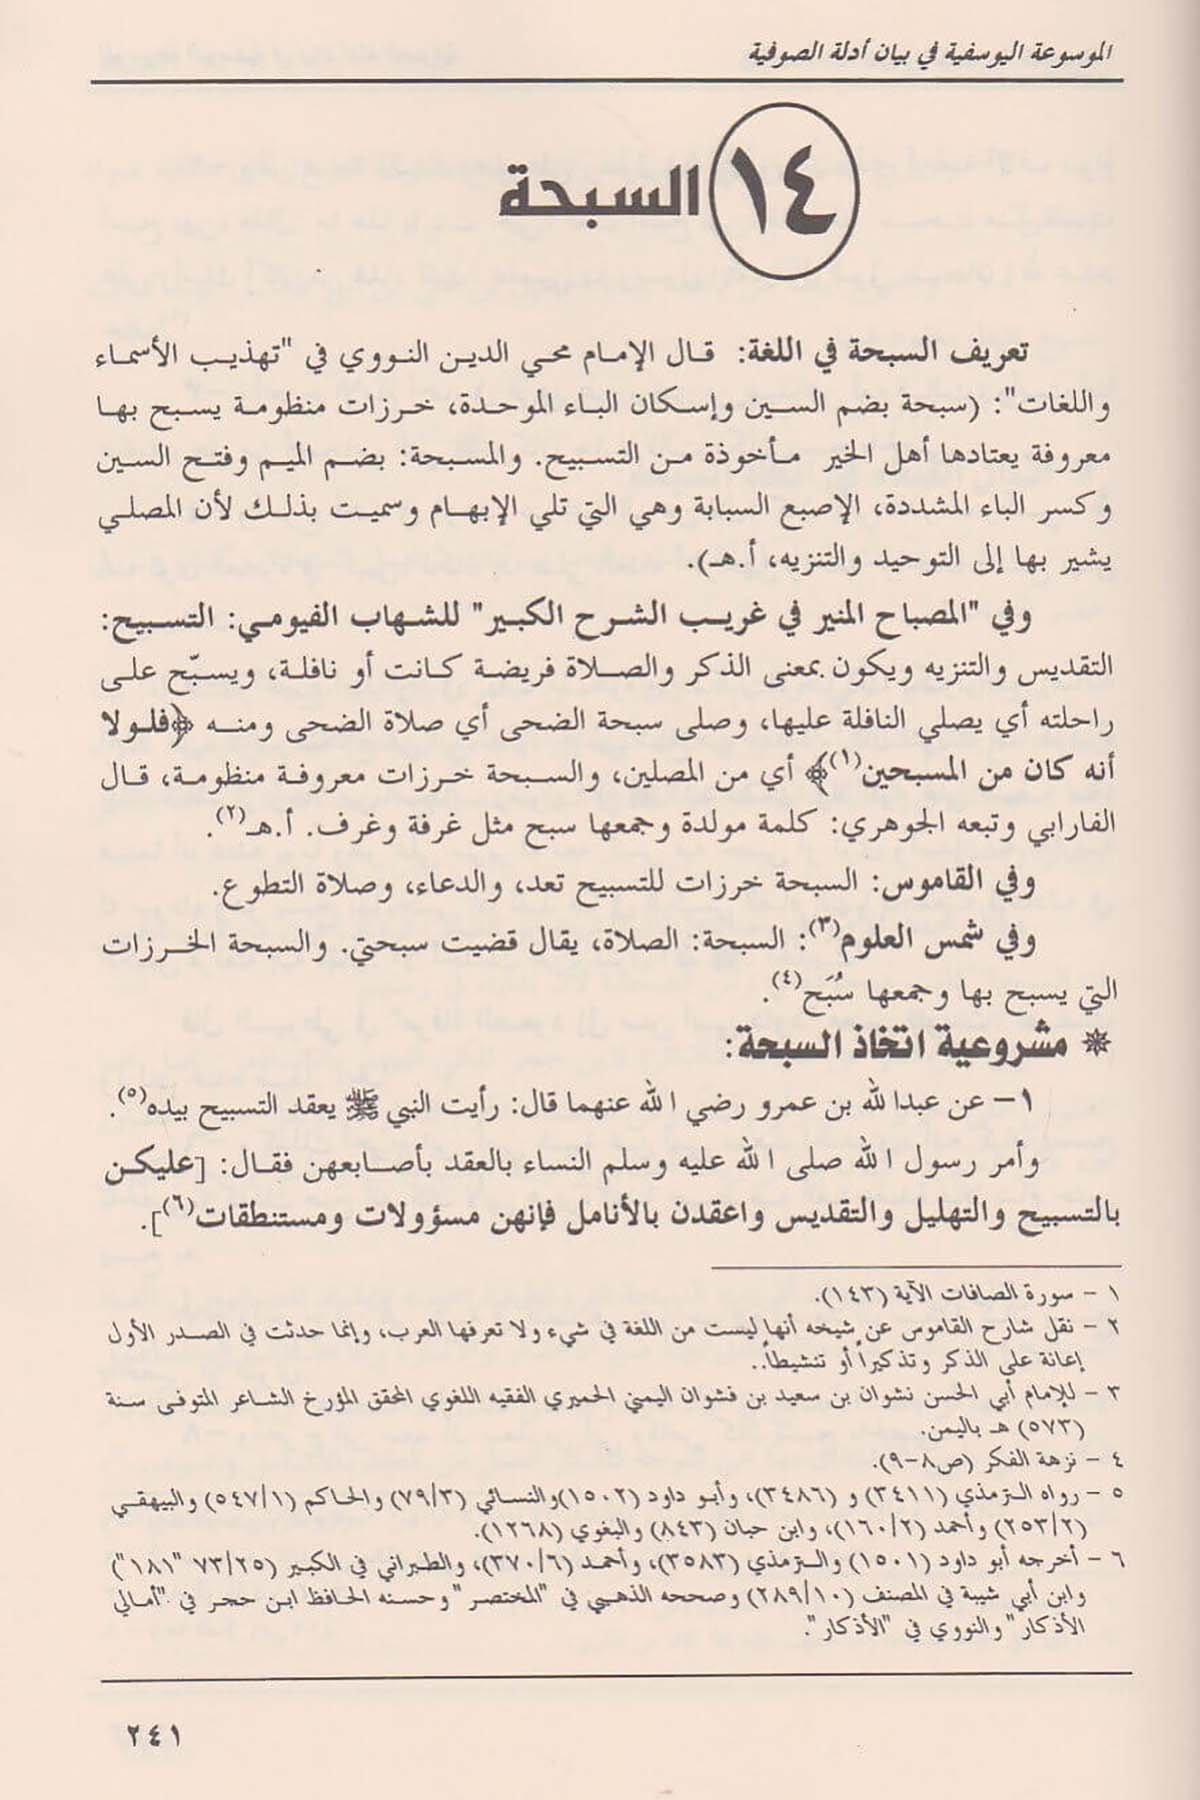 الموسوعة اليوسفية في بيان أدلة الصوفية
١٤ السبحة
تعريف السبحة في اللغة: قال الإمام محي الدين النووي في "تهذيب الأسماء
واللغات": (سبحة بضم السين وإسكان الباء الموحدة، خرزات منظومة يسبح بها
معروفة يعتادها أهل الخير مأخوذة من التسبيح. والمسبحة: بضم الميم وفتح السين
وكسر الباء المشددة، الإصبع السبابة وهي التي تلي الإبهام وسميت بذلك لأن المصلي
يشير بها إلى التوحيد والتنزيه، أ.هـ).
وفي "المصباح المنير في غريب الشرح الكبير" للشهاب الفيومي: التسبيح:
التقديس والتنزيه ويكون بمعنى الذكر والصلاة فريضة كانت أو نافلة، ويسبّح على
راحلته أي يصلي النافلة عليها، وصلى سبحة الضحى أي صلاة الضحى ومنه ﴿فلولا
أنه كان من المسبحين(١)﴾ أي من المصلين، والسبحة خرزات معروفة منظومة، قال
الفارابي وتبعه الجوهري: كلمة مولدة وجمعها سبح مثل غرفة وغرف. أ.هـ(٢).
وفي القاموس: السبحة خرزات للتسبيح تعد، والدعاء، وصلاة التطوع.
وفي شمس العلوم(٣): السبحة: الصلاة، يقال قضيت سبحتي. والسبحة الخرزات
التي يسبح بها وجمعها سُبَح(٤).
❋ مشروعية اتخاذ السبحة:
١– عن عبدالله بن عمرو رضي الله عنهما قال: رأيت النبي ﷺ يعقد التسبيح بيده(٥).
وأمر رسول الله صلى الله عليه وسلم النساء بالعقد بأصابعهن فقال: [عليكن
بالتسبيح والتهليل والتقديس واعقدن بالأنامل فإنهن مسؤولات ومستنطقات(٦)].
١ – سورة الصافات الآية (١٤٣).
٢ – نقل شارح القاموس عن شيخه أنها ليست من اللغة في شيء ولا تعرفها العرب، وإنما حدثت في الصدر الأول
إعانة على الذكر وتذكيراً أو تنشيطاً..
٣ – للإمام أبي الحسن نشوان بن سعيد بن فشوان اليمني الحميري الفقيه اللغوي المحقق المؤرخ الشاعر المتوفى سنة
(٥٧٣) هـ باليمن.
٤ – نزهة الفكر (ص٨–٩).
٥ – رواه الترمذي (٣٤١١) و (٣٤٨٦)، وأبو داود (١٥٠٢)والنسائي (٧٩/٣) والحاكم (٥٤٧/١) والبيهقي
(٢٥٣/٢) وأحمد (١٦٠/٢)، وابن حبان (٨٤٣) والبغوي (١٢٦٨).
٦ – أخرجه أبو داود (١٥٠١) والترمذي (٣٥٨٣)، وأحمد (٣٧٠/٦)، والطبراني في الكبير (٧٣/٢٥ "١٨١")
وابن أبي شيبة في المصنف (٢٨٩/١٠) وصححه الذهبي في "المختصر" وحسنه الحافظ ابن حجر في "أمالي
الأذكار" والنووي في "الأذكار".
٢٤١